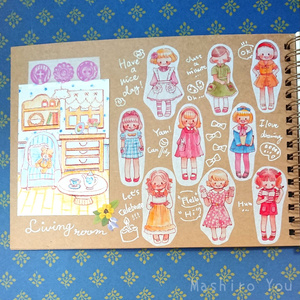 Have
a
nice
day
Just
a
moment
Oh!
Yum!
I love
drawing
Let's
celebrate
!!!
Hello
Hi
Living
room
Mashiro You